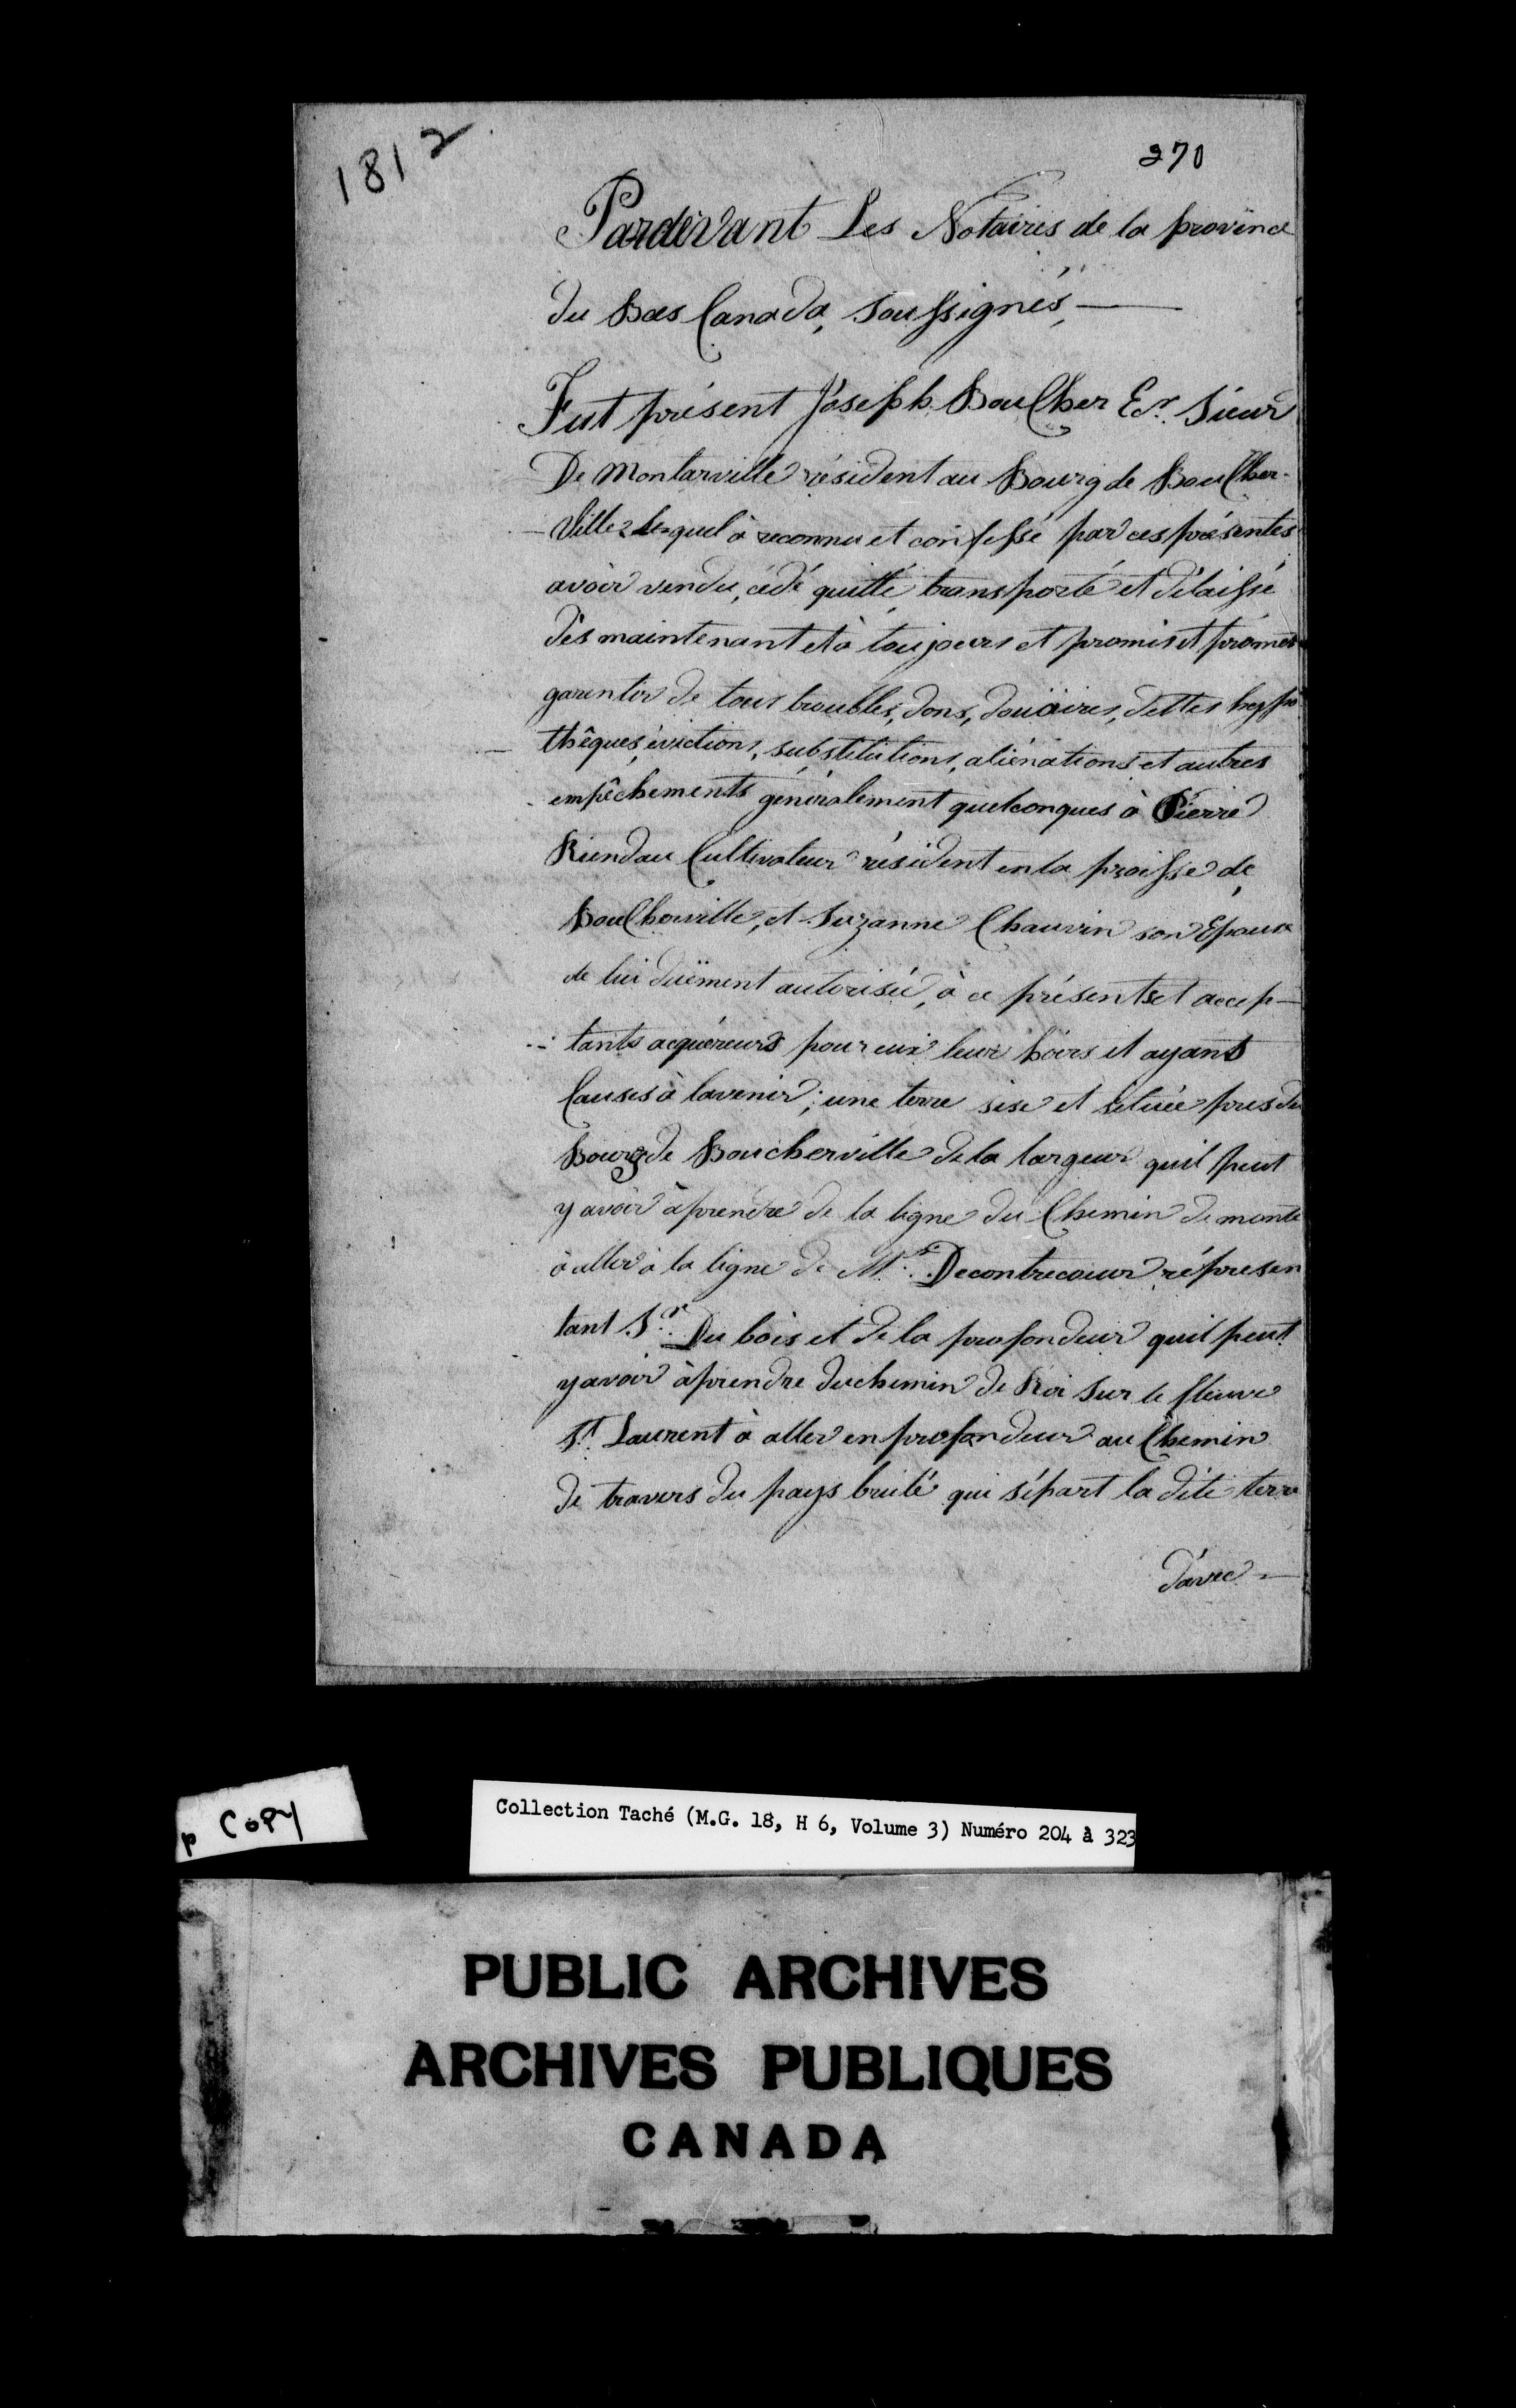 1812
270
Pardevant Les Notaires de la province
du Bas Canada, Soussignés,
Fut présent Joseph BouCher Er. Sieur
De Montarville résident au Bourg de BouCher-
Ville Lequel à reconnu et confessé par ces présentes
avoir vendu, cédé quitté, transporté et délaissé
dès maintenant et à toujours et promis et promet
garentir de tous troubles, dons, douäires, dettes hyppo
thêques, évictions, substitutions, aliénations et autres
empêchements généralement quelconques à Pierre
Riendau Cultivateur résident en la proisse de
BouCherville, et Suzanne Chauvin son Epouse
de lui düement autorisée, à ce présents et accep-
tants acquéreurs pour eux leur hoirs et ayants
Causes à lavenir; une terre sise et située pres du
Bourg de Boucherville de la largeur quil peut
y avoir àprendre de la ligne du Chemin de monté
à aller à la ligne de Mr. Decontrecoeur répresen
tant Sr. Du bois et de la profondeur quil peut
y avoir àprendre duchemin de Roi sur le fleuve
St. Laurent à aller en profondeur au Chemin
de travers du pays brulé qui sépart la dite terre
d'avec
p Copy
Collection Taché (M.G. 18, H 6, Volume 3) Numéro 204 à 323
PUBLIC ARCHIVES
ARCHIVES PUBLIQUES
CANADA